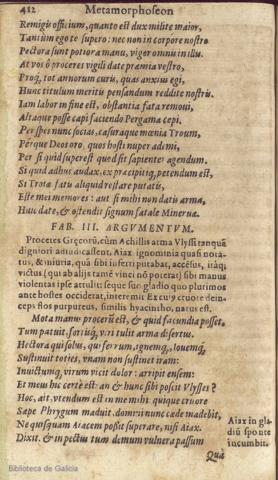 412 Metamorphoseon
Remigij officium, quanto est dux milite maior,
Tantùm ego te supero: nec non in corpore nostro
Pectora sunt potiora manu, vigor omnis in illis.
At vos ô proceres vigili date præmia vestro,
Proq; tot annorum curis, quas anxius egi,
Hunc titulum meritis pensandum reddite nostris.
Iam labor in fine est, obstantia fata removi,
Altaque posse capi faciendo Pergama cepi.
Per spes nunc socias, casuraque mœnia Troum,
Perque Deos oro, quos hosti nuper ademi,
Per si quid superest quod sit sapienter agendum.
Si quid adhuc audax, ex præcipitiq; petendum est,
Si Troiæ fatis aliquid restare putatis,
Este mei memores: aut si mihi non datis arma,
Huic date, & ostendit signum fatale Minervæ.
FAB. III. ARGVMENTVM.
Proceres Gręcorũ, cùm Achillis arma Vlyssi tanquã
digniori adiudicassent, Aiax ignominia quasi nota-
tus, & iniuria, quã sibi inferri putabat, accẽsus, itàq;
victus (qui ab alijs tamẽ vinci nõ poterat) sibi manus
violentas ipse attulit: seque suo gladio quo plurimos
ante hostes occiderat, interemit. Ex cuiꝰ cruore dein-
ceps flos purpureus, similis hyacintho, natus est.
Mota manus procerũ est, & quid facundia posset,
Tum patuit, fortisq; viri tulit arma disertus.
Hectora qui solus, qui ferrum, ignemq; Iovemq;
Sustinuit toties, vnam non sustinet iram:
Invictumq; virum vicit dolor: arripit ensem:
Et meus hic certè est: an & hunc sibi poscit Vlysses?
Hoc, ait, vtendum est in me mihi: quique cruore
Sæpe Phrygum maduit, domini nunc cæde madebit,
Ne quisquam Aiacem possit superare, nisi Aiax.
Dixit. & in pectus tum demum vulnera passum
Aiax in gla-
diũ spõte
incumbit.
Quà
Biblioteca de Galicia